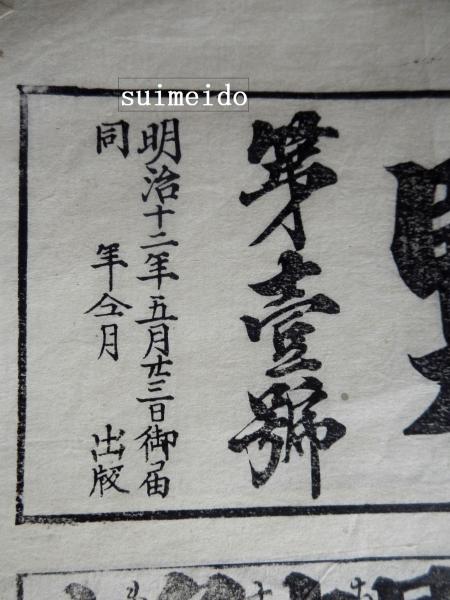 suimeido
第壹號
明治十二年五月廿三日御届
同年仝月出版